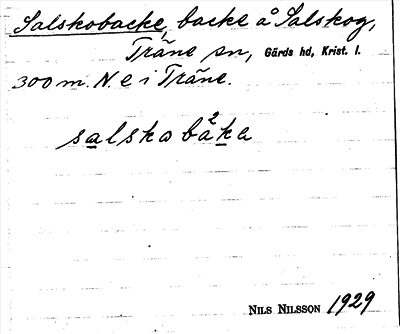 Salskobacke, backe å Salskog,
Träne sn, Gärds hd, Krist. l.
300 m. N. e i Träne.
salskobåke
2
NILS NILSSON 1929